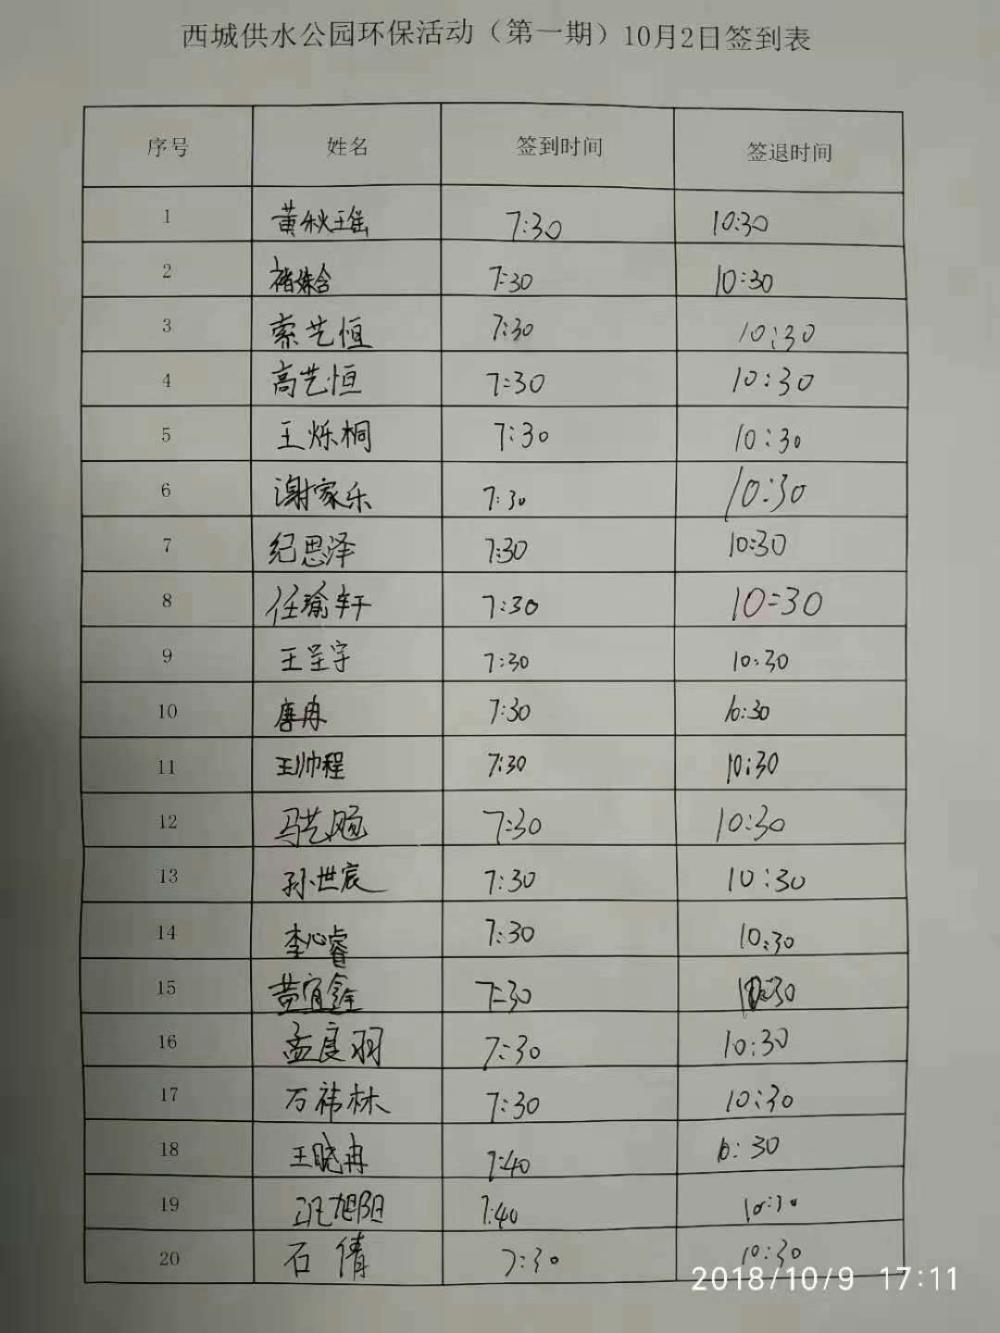 西城供水公园环保活动（第一期）10月2日签到表
序号 姓名 签到时间 签退时间
1 黄秋瑶 7:30 10:30
2 褚姝含 7:30 10:30
3 索艺恒 7:30 10:30
4 高艺恒 7:30 10:30
5 王烁桐 7:30 10:30
6 谢家乐 7:30 10:30
7 纪思泽 7:30 10:30
8 任瑜轩 7:30 10:30
9 王呈宇 7:30 10:30
10 唐冉 7:30 10:30
11 王帅程 7:30 10:30
12 马艺 7:30 10:30
13 孙世宸 7:30 10:30
14 李心睿 7:30 10:30
15 黄宜鑫 7:30 10:30
16 孟良羽 7:30 10:30
17 万祎林 7:30 10:30
18 王晓冉 7:40 10:30
19 旭阳 7:40 10:30
20 石倩 7:30 10:30
2018/10/9 17:11